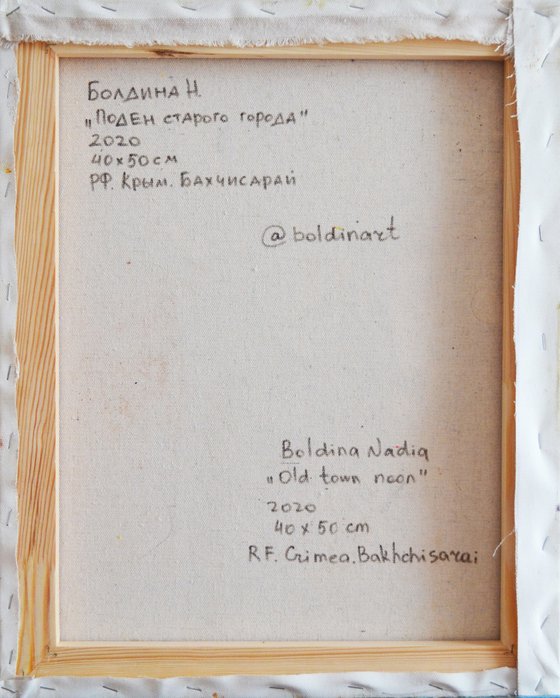 Болдина Н.
„Поден старого города"
2020
40х50см
РФ. Крым. Бахчисарай
@boldinart
Boldina Nadia
„Old town noon"
2020
40 x 50 cm
RF. Crimea. Bakhchisarai